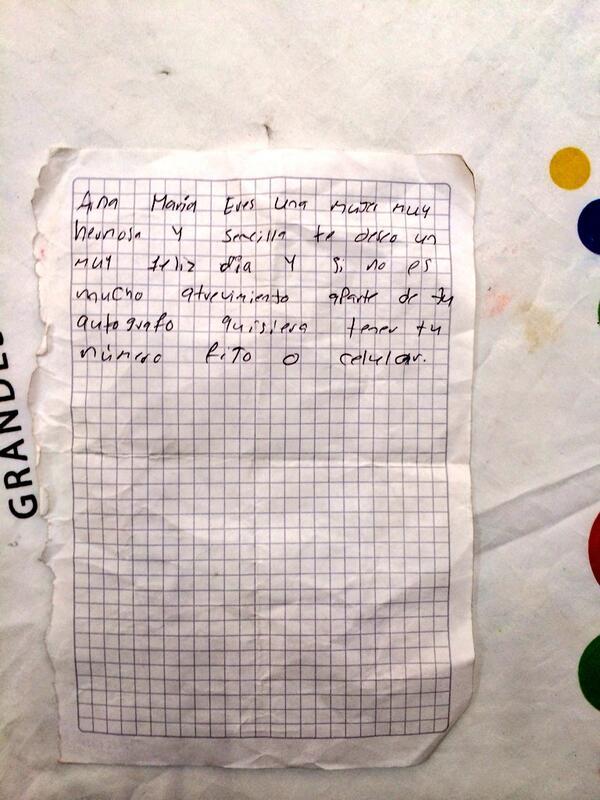 Ana Maria Eres una mujer muy
hermosa y sencilla te deseo un
muy feliz dia y si no es
mucho atrevimiento aparte de tu
autografo quisiera tener tu
número fiTo o celular.
GRANDES